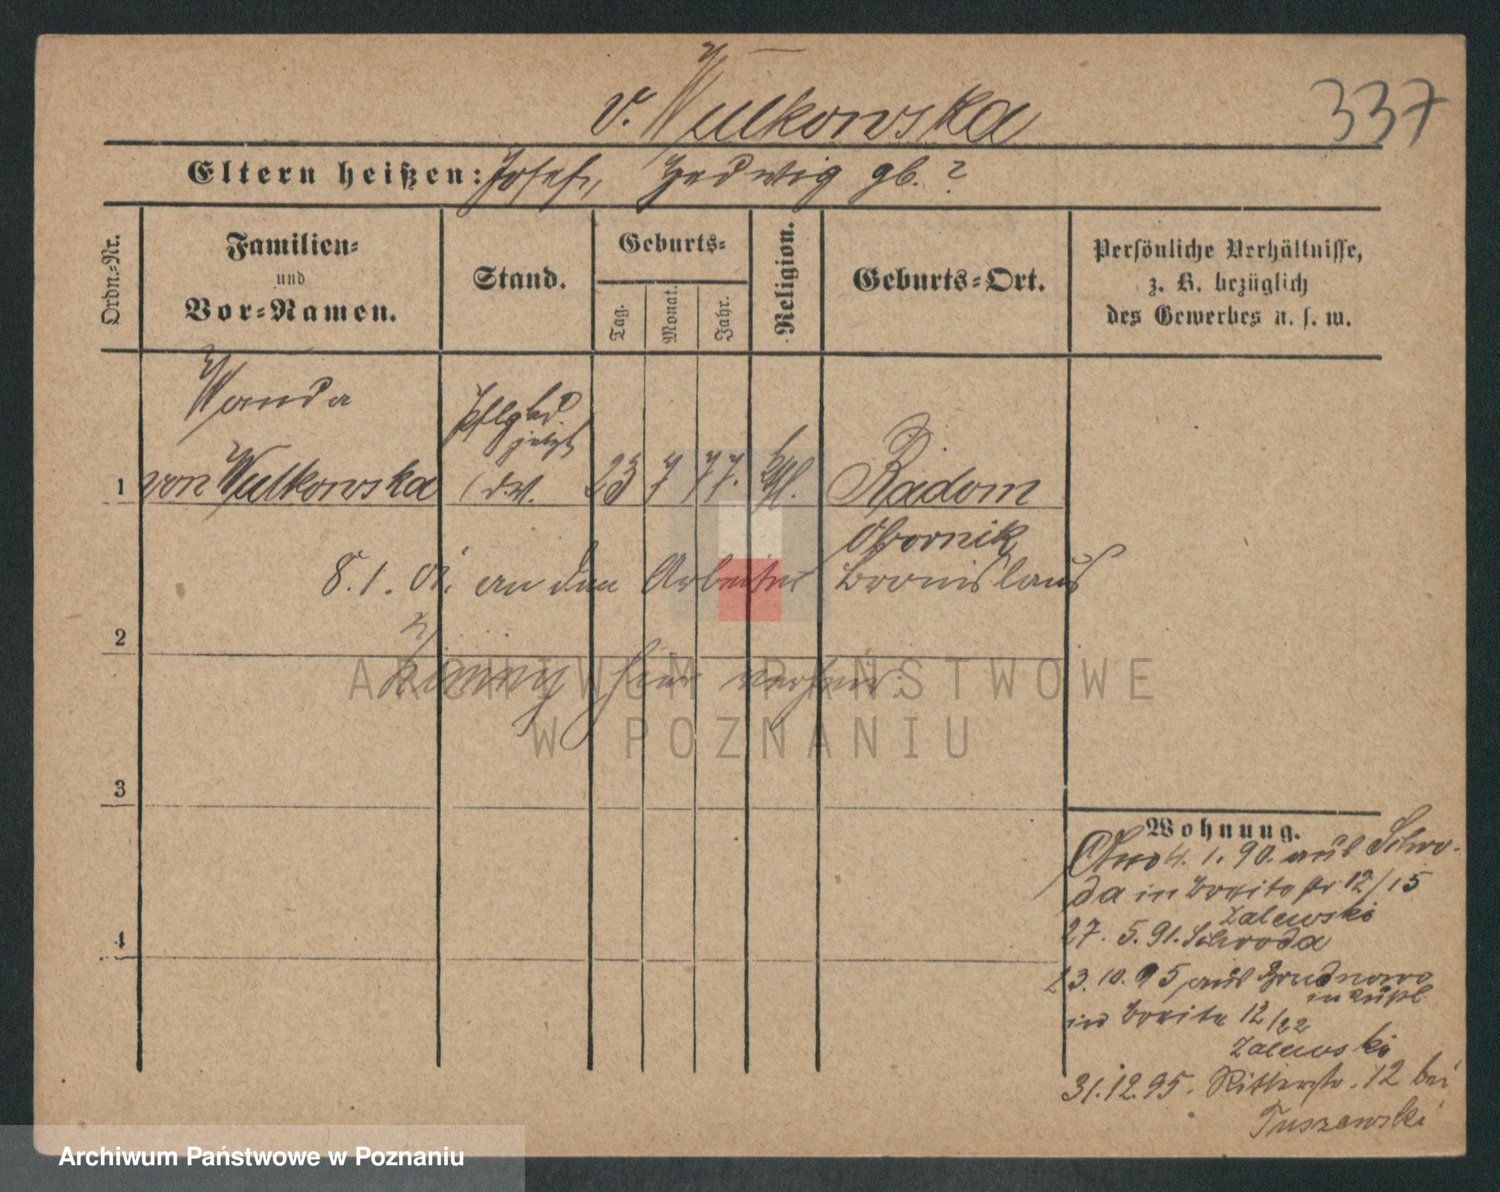 v. Wulkowska
337
Eltern heißen: Josef, Hedwig gb. ?
Ordn.=Nr.
Familien=
und
Vor=Namen.
Stand.
Geburts=
Tag.
Monat.
Jahr.
Religion.
Geburts=Ort.
Persönliche Verhältnisse,
z. B. bezüglich
des Gewerbes u. s. w.
Wanda
jetzt
1 von Wulkowska 23 7 77. kth. Radom
Obornik
8. 1. 01. an den Arbeiter Bronislaus
2
hier verheir.
3
4
Wohnung.
4. 1. 90. aus Schro-
da in Breitestr 12/15
Zalewski
27. 5. 91. Schroda
23. 10. 95 aus
in Breite 12/22
Zalewski
31. 12. 95. Ritterstr. 12 bei
Tuszewski
ARCHIWUM PAŃSTWOWE
W POZNANIU
Archiwum Państwowe w Poznaniu